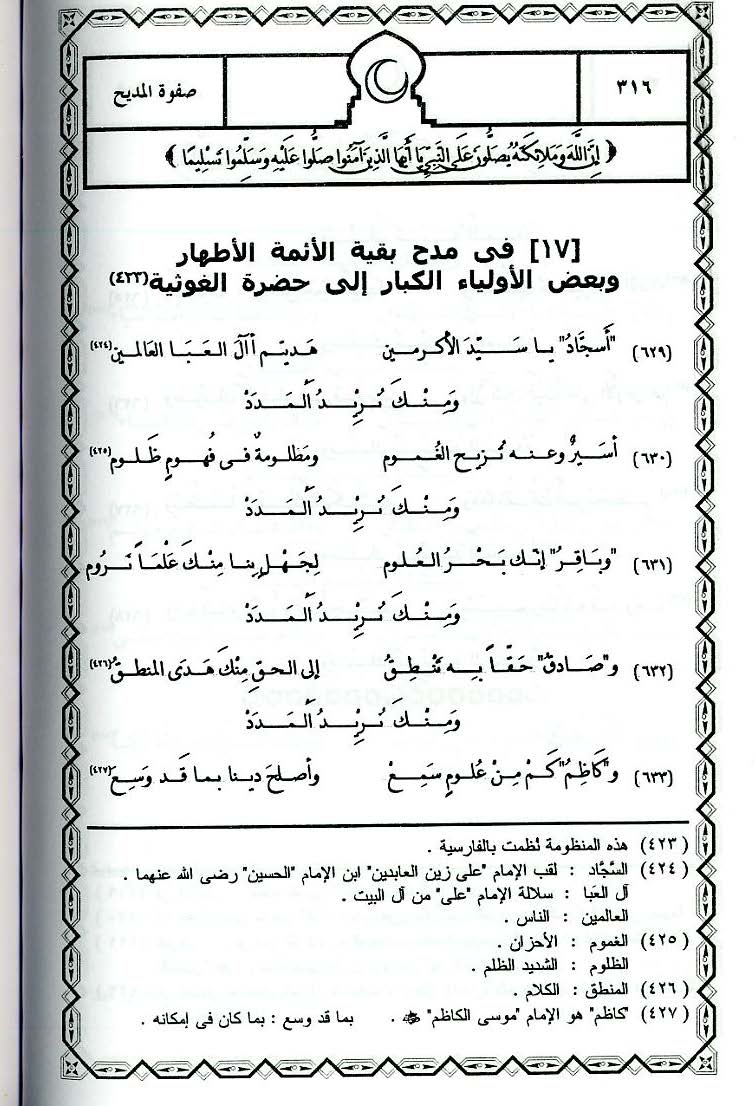 ٣١٦
صفوة المديح
﴿ إِنَّ اللَّهَ وَمَلَائِكَتَهُ يُصَلُّونَ عَلَى النَّبِيِّ يَا أَيُّهَا الَّذِينَ آمَنُوا صَلُّوا عَلَيْهِ وَسَلِّمُوا تَسْلِيمًا ﴾
[١٧] فى مدح بقية الأئمة الأطهار
وبعض الأولياء الكبار إلى حضرة الغوثية(٤٢٣)
(٦٢٩) "أَسجَّادُ" يا سَيِّدَ الأكرمين هَديتم أآلَ العَبَا العَالمين(٤٢٤)
وَمِنْكَ نُرِيْدُ الْمَدَدْ
(٦٣٠) أسَيرٌ وعنه نُزيح الغُموم ومَظلومةٌ فى فُهومٍ ظَلوم(٤٢٥)
وَمِنْكَ نُرِيْدُ الْمَدَدْ
(٦٣١) "وبَاقِرُ" إنّك بَحْرُ العُلوم لِجَهْلٍ بِنا مِنْكَ عَلْمَاً نَروم
وَمِنْكَ نُرِيْدُ الْمَدَدْ
(٦٣٢) و"صَادقٌ" حَقّاً بِه تَنْطِقُ إلى الحق مِنْكَ هَدَى المنطقُ(٤٢٦)
وَمِنْكَ نُرِيْدُ الْمَدَدْ
(٦٣٣) و"كَاظِمُ" كَمْ مِنْ عُلومٍ سَمِعْ وأصلحَ دينا بما قَد وَسِعَ(٤٢٧)
(٤٢٣) هذه المنظومة نُظمت بالفارسية .
(٤٢٤) السَّجَّاد : لقب الإمام "على زين العابدين" ابن الإمام "الحسين" رضى الله عنهما .
آل العَبا : سلالة الإمام "على" من آل البيت .
العالمين : الناس .
(٤٢٥) الغموم : الأحزان .
الظلوم : الشديد الظلم .
(٤٢٦) المنطق : الكلام .
(٤٢٧) "كاظم" هو الإمام "موسى الكاظم" . بما قد وسع : بما كان فى إمكانه .